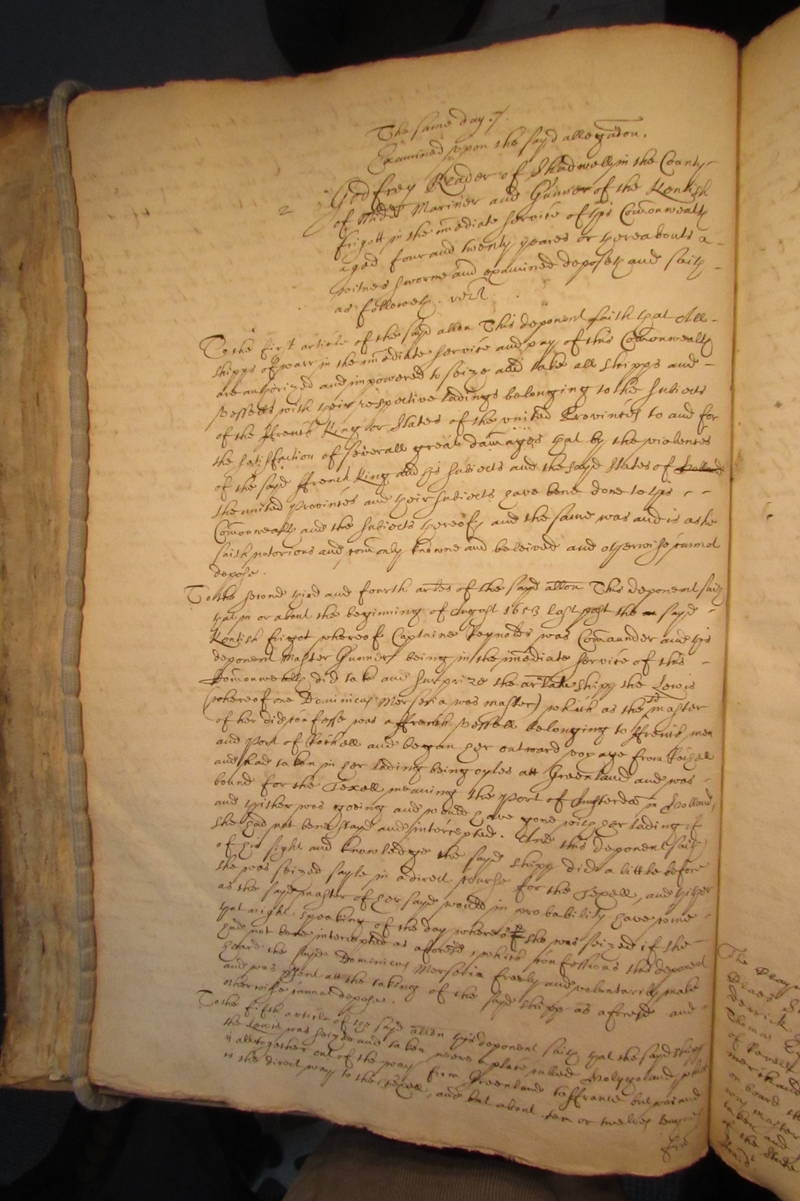 The same day./
Examined upon the sayd allegation.
2
Godfrey Reader of Shadwell in the County
of Midds Mariner and Gunner of the Kentish
frigott in the imediate service of this Comonwealth
aged four and twenty yeares or thereabouts a
witnes sworne and examined deposeth and saith
as followeth. vizt.
To the first article of the sayd allon This deponent saith that All
shipps of warr in the imediate service and pay of this Comonwealth
are authorized and impowered to seize and take all shipps and
vessells with their respective ladings belonging to the Subiects
of the ffrench King or States of the united Provinces to and for
the satisfaction of severall great damages that by the violences
of the sayd ffrench King and his Subiects and the sayd States of
the united Provinces and their Subiects have bene done to this
Comonwealth and the Subiects thereof, and the same was and is as he
saith notorious and comonly knowne and beleived and otherwise cannot
depose.
To the second third and fourth artles of the sayd allon This deponent saith
that in or about the beginning of August 1653 last past the sayd
Kentish frigot whereof Captaine Reynolds was Comaunder and this
deponent Master Gunner being in the imediate service of this
Comonwealth did take and surprize the arlate shipp the Lewis
(whereof one Dominicus Merseria was master) which as the master
of her did confesse was a ffrench vessell belonging to ffrench men
and Port of Rochell and began her outward voyage from Rochell
and had taken in her lading being oyles att Greenland and was
bound for the Texell meaning the Port of Amsterdam in Holland,
and thither was going and would have gone with her lading if
she had not bene stayd and intercepted. And this deponent saith
of his sight and knowledge the sayd shipp did a little before
she was seized sayle in a direct course for the Texell, and thither
as the sayd master of her sayd would in probability have come
that night speaking of the day whereof she was seized if she
had not bene intercepted as aforesd which confessions this deponent
heard the sayd Dominicus Merseria freely and voluntarily make
and was present att the taking of the sayd shipp as aforesd and
otherwise cannot depose.
To the fifth article of the sayd allon this deponent saith that the sayd shipp
the Lewis was seized and taken neere a place called Holyheland which
is alltogether out of the way from Greenland to ffrance but
is the direct way to the Texell, and but about tenn or twelve